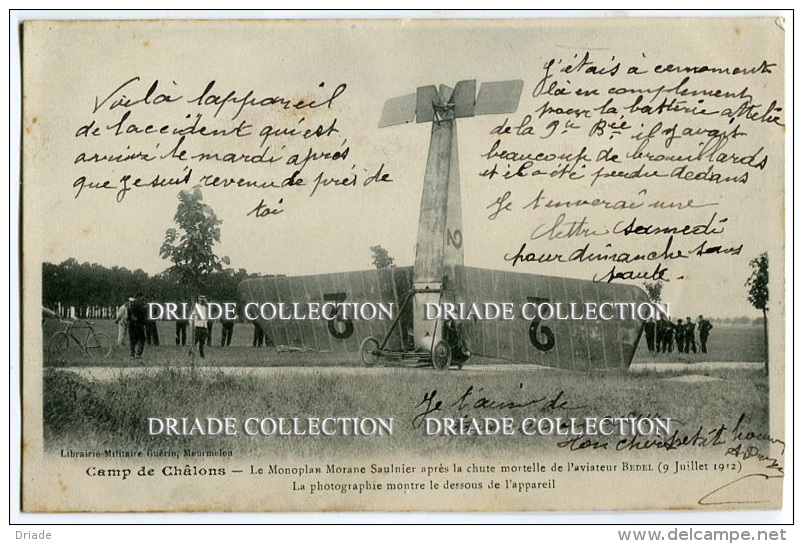 Voilà l'appareil
de l'accident qui est
arrivé le mardi après
que je suis revenu de près de
toi
J'étais à cernement
là en complement
pour la batterie attelée
de la 9e Bie il y avait
beaucoup de brouillards
et il a été perdu dedans
Je t'enverai une
lettre samedi
pour dimanche sans
faute.
2
2
2
DRIADE COLLECTION DRIADE COLLECTION
DRIADE COLLECTION DRIADE COLLECTION
Je t'aime de
ton cher petit homme
Librairie Militaire Guérin, Mourmelon
Camp de Châlons — Le Monoplan Morane Saulnier après la chute mortelle de l'aviateur BEDEL (9 Juillet 1912)
La photographie montre le dessous de l'appareil
Driade
http://www.delcampe.net